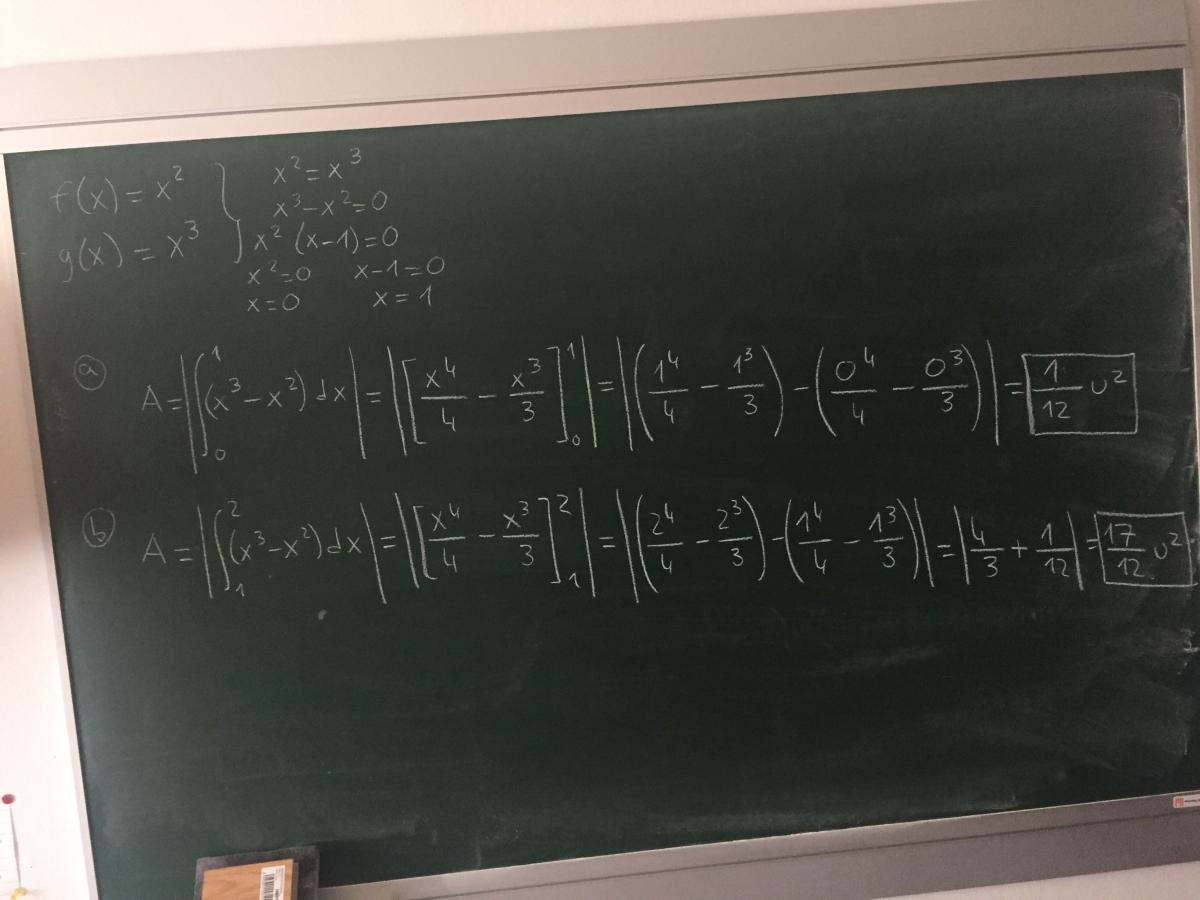 f(x) = x² } x² = x³
x³ - x² = 0
g(x) = x³ x² (x-1) = 0
x² = 0 x-1 = 0
x = 0 x = 1
a) A = |∫₀¹ (x³ - x²) dx| = |[x⁴/4 - x³/3]₀¹| = |(1⁴/4 - 1³/3) - (0⁴/4 - 0³/3)| = 1/12 u²
b) A = |∫₁² (x³ - x²) dx| = |[x⁴/4 - x³/3]₁²| = |(2⁴/4 - 2³/3) - (1⁴/4 - 1³/3)| = |4/3 + 1/12| = 17/12 u²